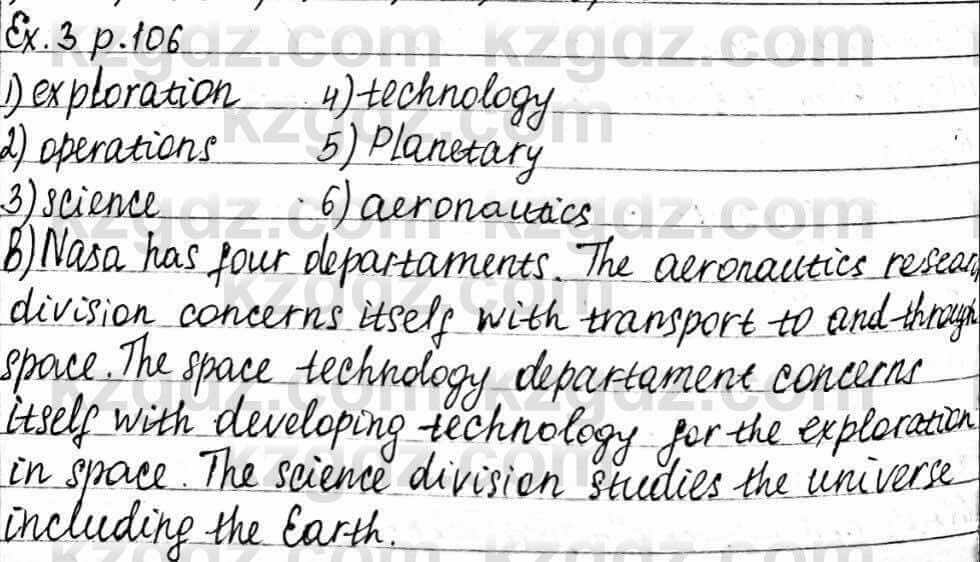 Ex. 3 p. 106
1) exploration 4) technology
2) operations 5) Planetary
3) science 6) aeronautics
B) Nasa has four departaments. The aeronautics reseac
division concerns itself with transport to and through
space. The space technology departament concerns
itself with developing technology for the exploration
in space. The science division studies the universe
including the Earth.